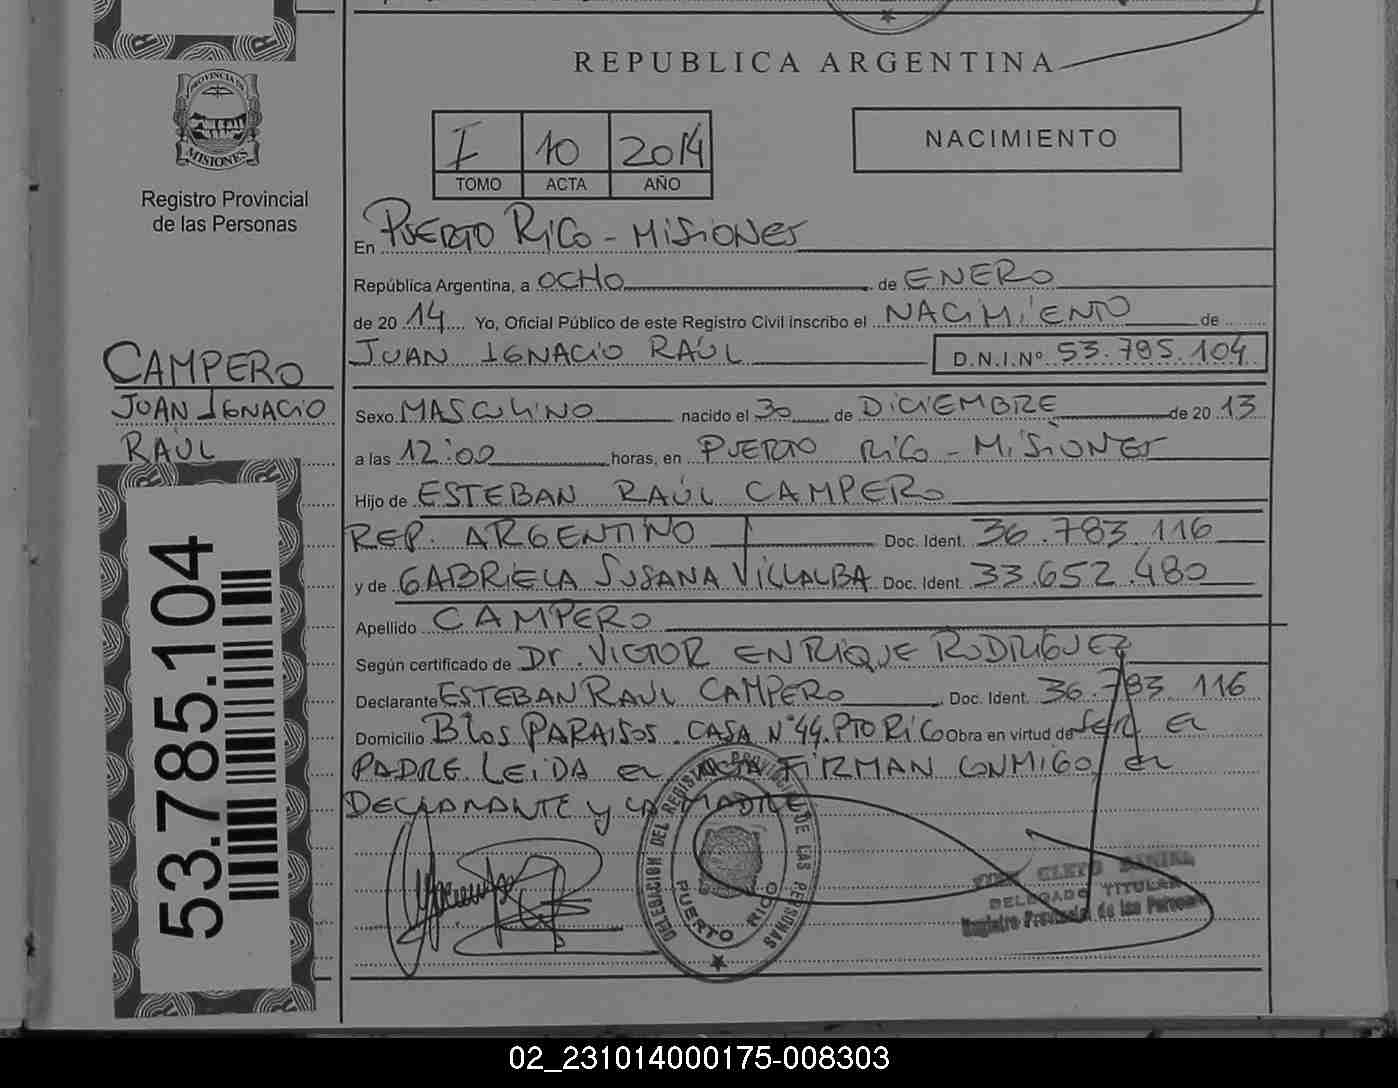 REPUBLICA ARGENTINA
PROVINCIA DE
MISIONES
Registro Provincial
de las Personas
I 10 2014
TOMO ACTA AÑO
NACIMIENTO
En PUERTO RICO - MISIONES
República Argentina, a OCHO de ENERO
de 20 14 Yo, Oficial Público de este Registro Civil inscribo el NACIMIENTO de
JUAN IGNACIO RAÚL D.N.I.Nº 53.785.104
CAMPERO
JUAN IGNACIO
RAÚL
Sexo MASCULINO nacido el 30 de DICIEMBRE de 20 13
a las 12:00 horas, en PUERTO RICO - MISIONES
Hijo de ESTEBAN RAÚL CAMPERO
REP. ARGENTINO Doc. Ident. 36.783.116
y de GABRIELA SUSANA VILLALBA Doc. Ident. 33.652.480
Apellido CAMPERO
Según certificado de Dr. VICTOR ENRIQUE RODRIGUEZ
Declarante ESTEBAN RAUL CAMPERO Doc. Ident. 36.783.116
Domicilio Bº LOS PARAISOS. CASA Nº 44. PTO RICO Obra en virtud de SER EL
PADRE. LEIDA EL ACTA FIRMAN CONMIGO, EL
DECLARANTE Y LA MADRE
53.785.104
DELEGACION DEL REGISTRO PROVINCIAL DE LAS PERSONAS
PUERTO RICO
CLETO
DELEGADO TITULAR
Registro Provincial de las Personas
02_231014000175-008303